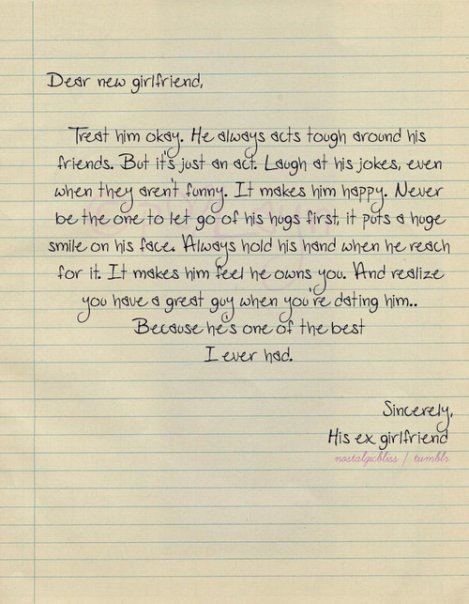 Dear new girlfriend,
Treat him okay. He always acts tough around his
friends. But it's just an act. Laugh at his jokes, even
when they aren't funny. It makes him happy. Never
be the one to let go of his hugs first, it puts a huge
smile on his face. Always hold his hand when he reach
for it. It makes him feel he owns you. And realize
you have a great guy when you're dating him..
Because he's one of the best
I ever had.
Sincerely,
His ex girlfriend
nostalgicbliss / tumblr